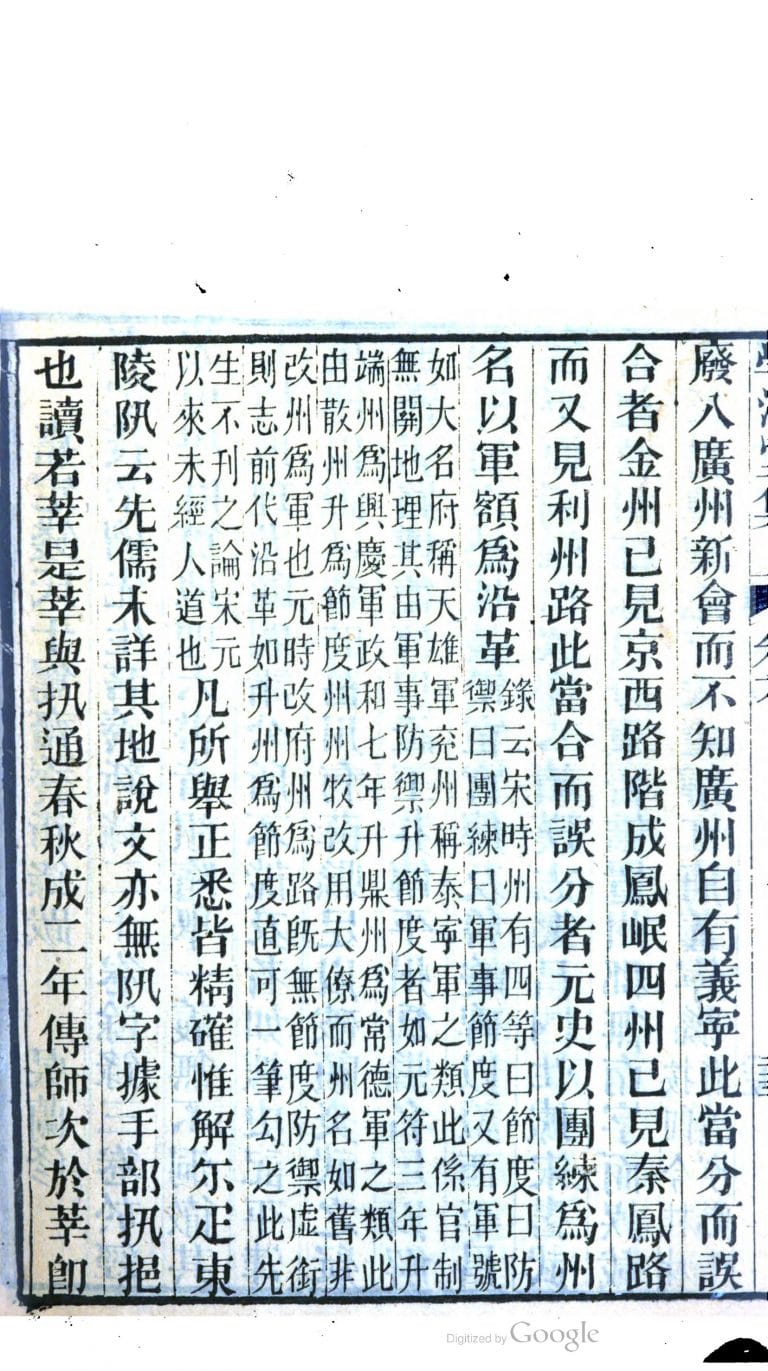 廢入廣州新會而不知廣州自有義寧此當分而誤
合者金州已見京西路階成鳳岷四州已見秦鳳路
而又見利州路此當合而誤分者元史以團練為州
名以軍額為沿革
錄云宋時州有四等曰節度曰防
禦曰團練曰軍事節度又有軍號
如大名府稱天雄軍兖州稱泰寧軍之類此係官制
無關地理其由軍事防禦升節度者如元符三年升
端州為興慶軍政和七年升鼎州為常德軍之類此
由散州升為節度州州牧改用大僚而州名如舊非
改州為軍也元時改府州為路既無節度防禦虛銜
則志前代沿革如升州為節度直可一筆勾之此先
生不刊之論宋元
以來未經人道也
凡所舉正悉皆精確惟解尒疋東
陵阠云先儒未詳其地說文亦無阠字據手部扟挹
也讀若莘是莘與扟通春秋成二年傳師次於莘卽
Digitized by Google